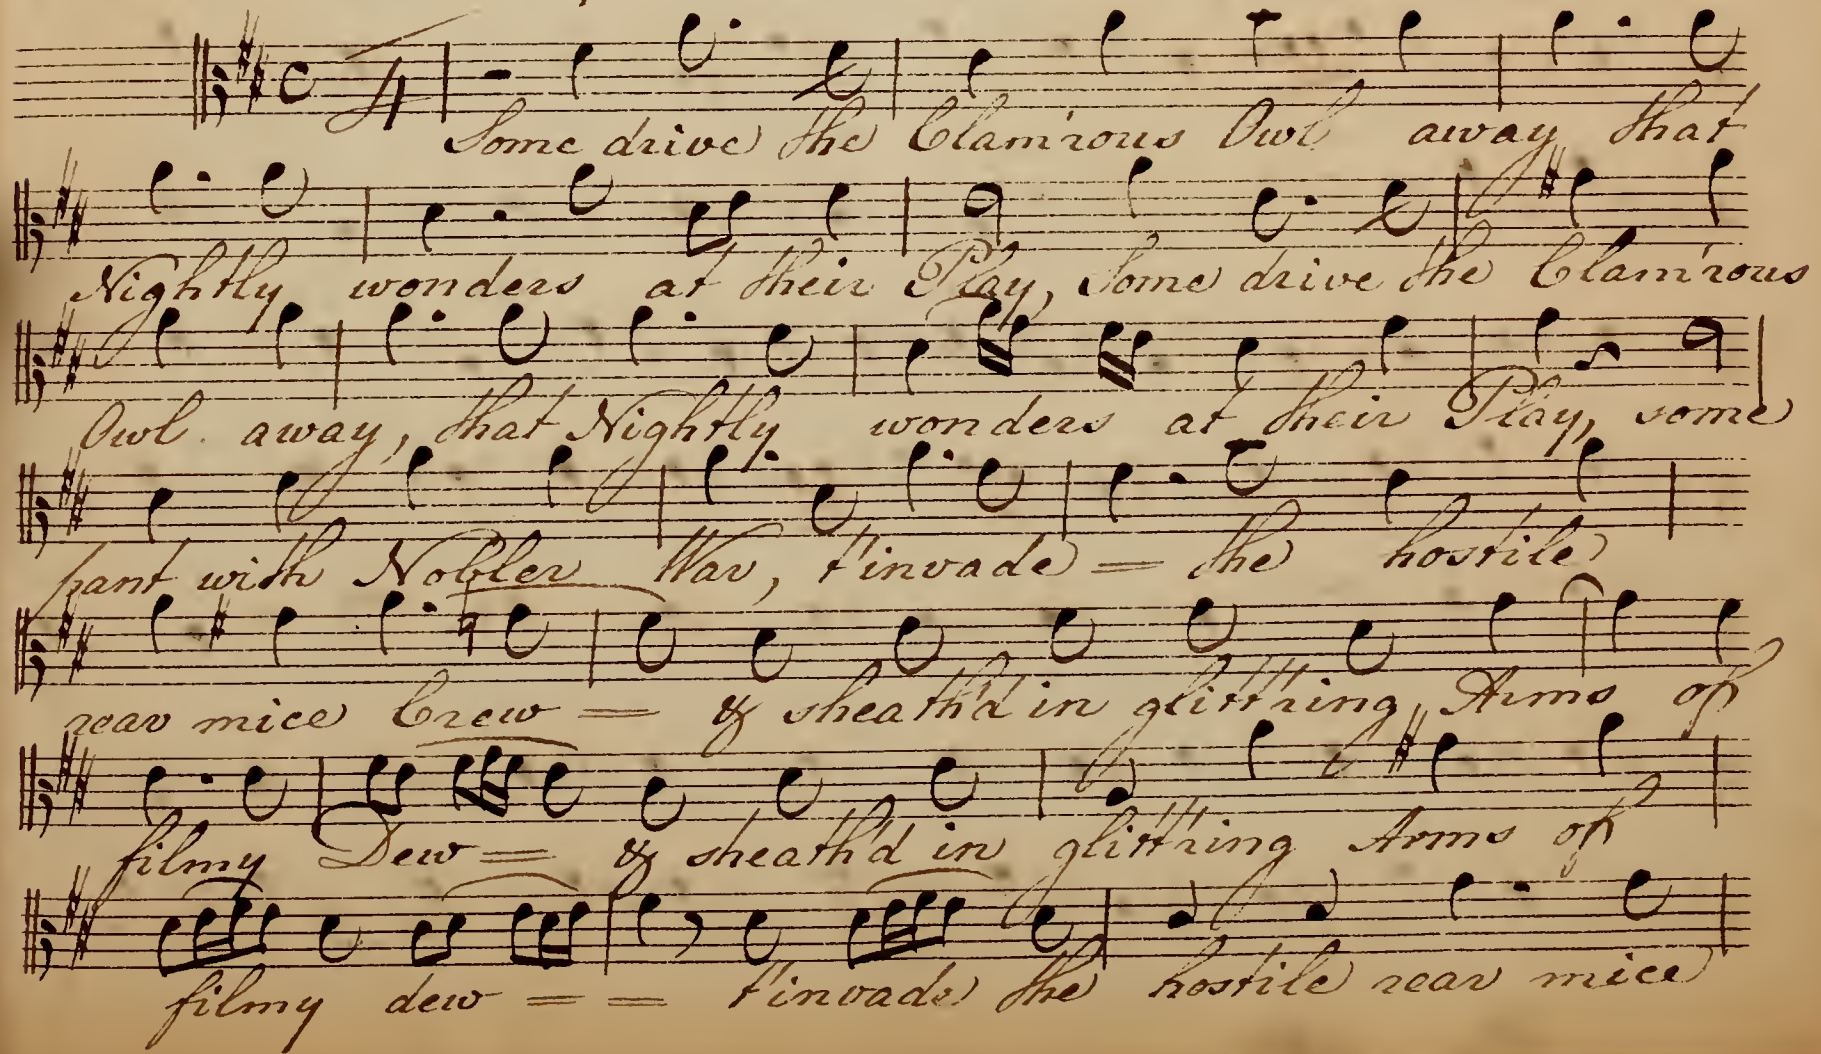 Some drive the Clam'rous Owl away that
Nightly wonders at their Play, Some drive the Clam'rous
Owl away, that Nightly wonders at their Play, some
pant with Nobler War, t'invade = the hostile
rear mice Crew = & sheath'd in glitt'ring Arms of
filmy Dew = & sheath'd in glitt'ring Arms of
filmy dew = = t'invade the hostile rear mice